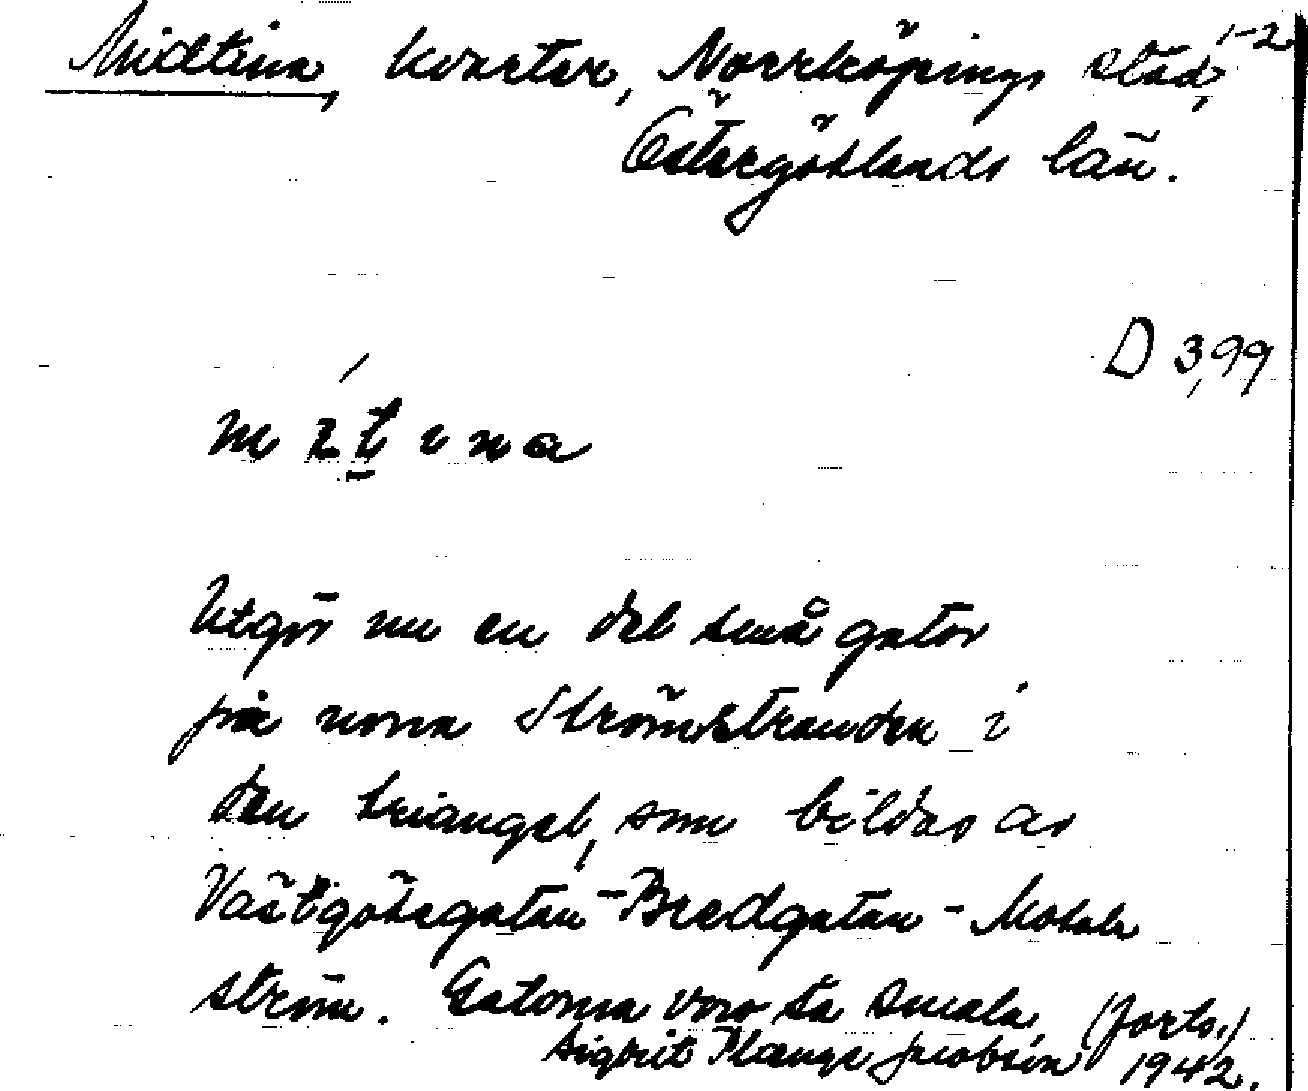 Midtina, kvarter, Norrköpings stad, 1-2
Östergötlands län.
D 3,99
mitina
Utgör nu en del små gator
på norra Strömstranden i
den triangel, som bildas av
Västgötegatan - Bredgatan - Motala
ström. Gatorna voro så smala, (forts.)
Sigrit Plænge Jacobson 1942.